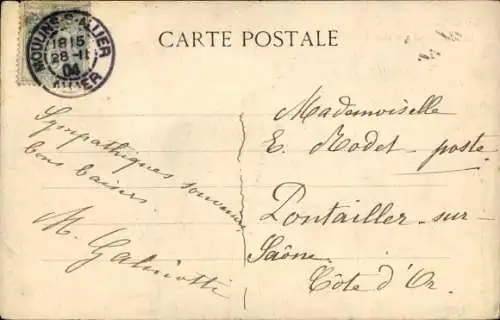 MOULINS-S-ALLIER
1815
28-11
04
ALLIER
CARTE POSTALE
Sympathiques souvenirs
bons baisers
M. Galiniotti
Mademoiselle
E. Rodet - poste
Pontailler-sur-
Saône.
Côte d'Or.